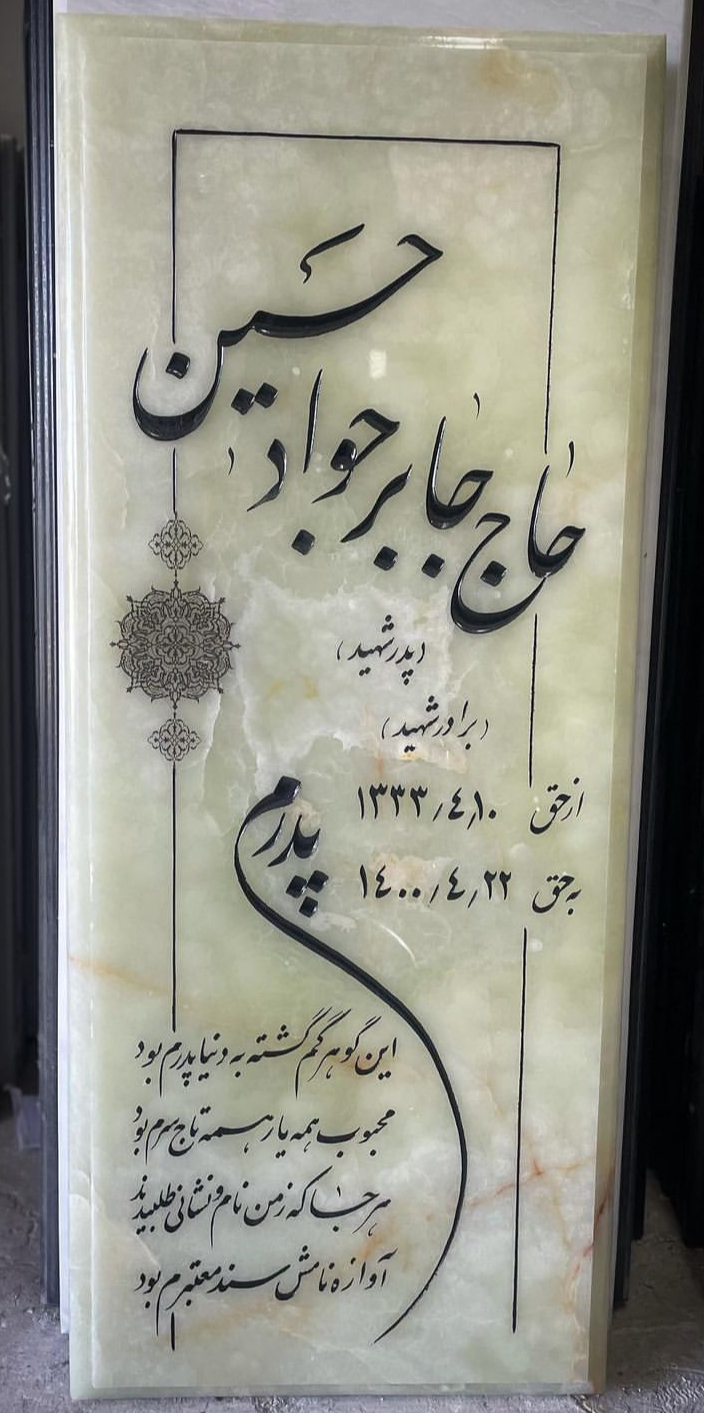 حاج جابر جوادحسین
(پدر شهید)
(برادر شهید)
از حق ۱۳۳۳/٤/۱۰
به حق ۱٤۰۰/٤/۲۲
پدرم
این گوهر گم گشته به دنیا پدرم بود
محبوب همه یار همه تاج سرم بود
هر جا که ز من نام و نشانی طلبیدند
آوازه نامش سند معتبرم بود